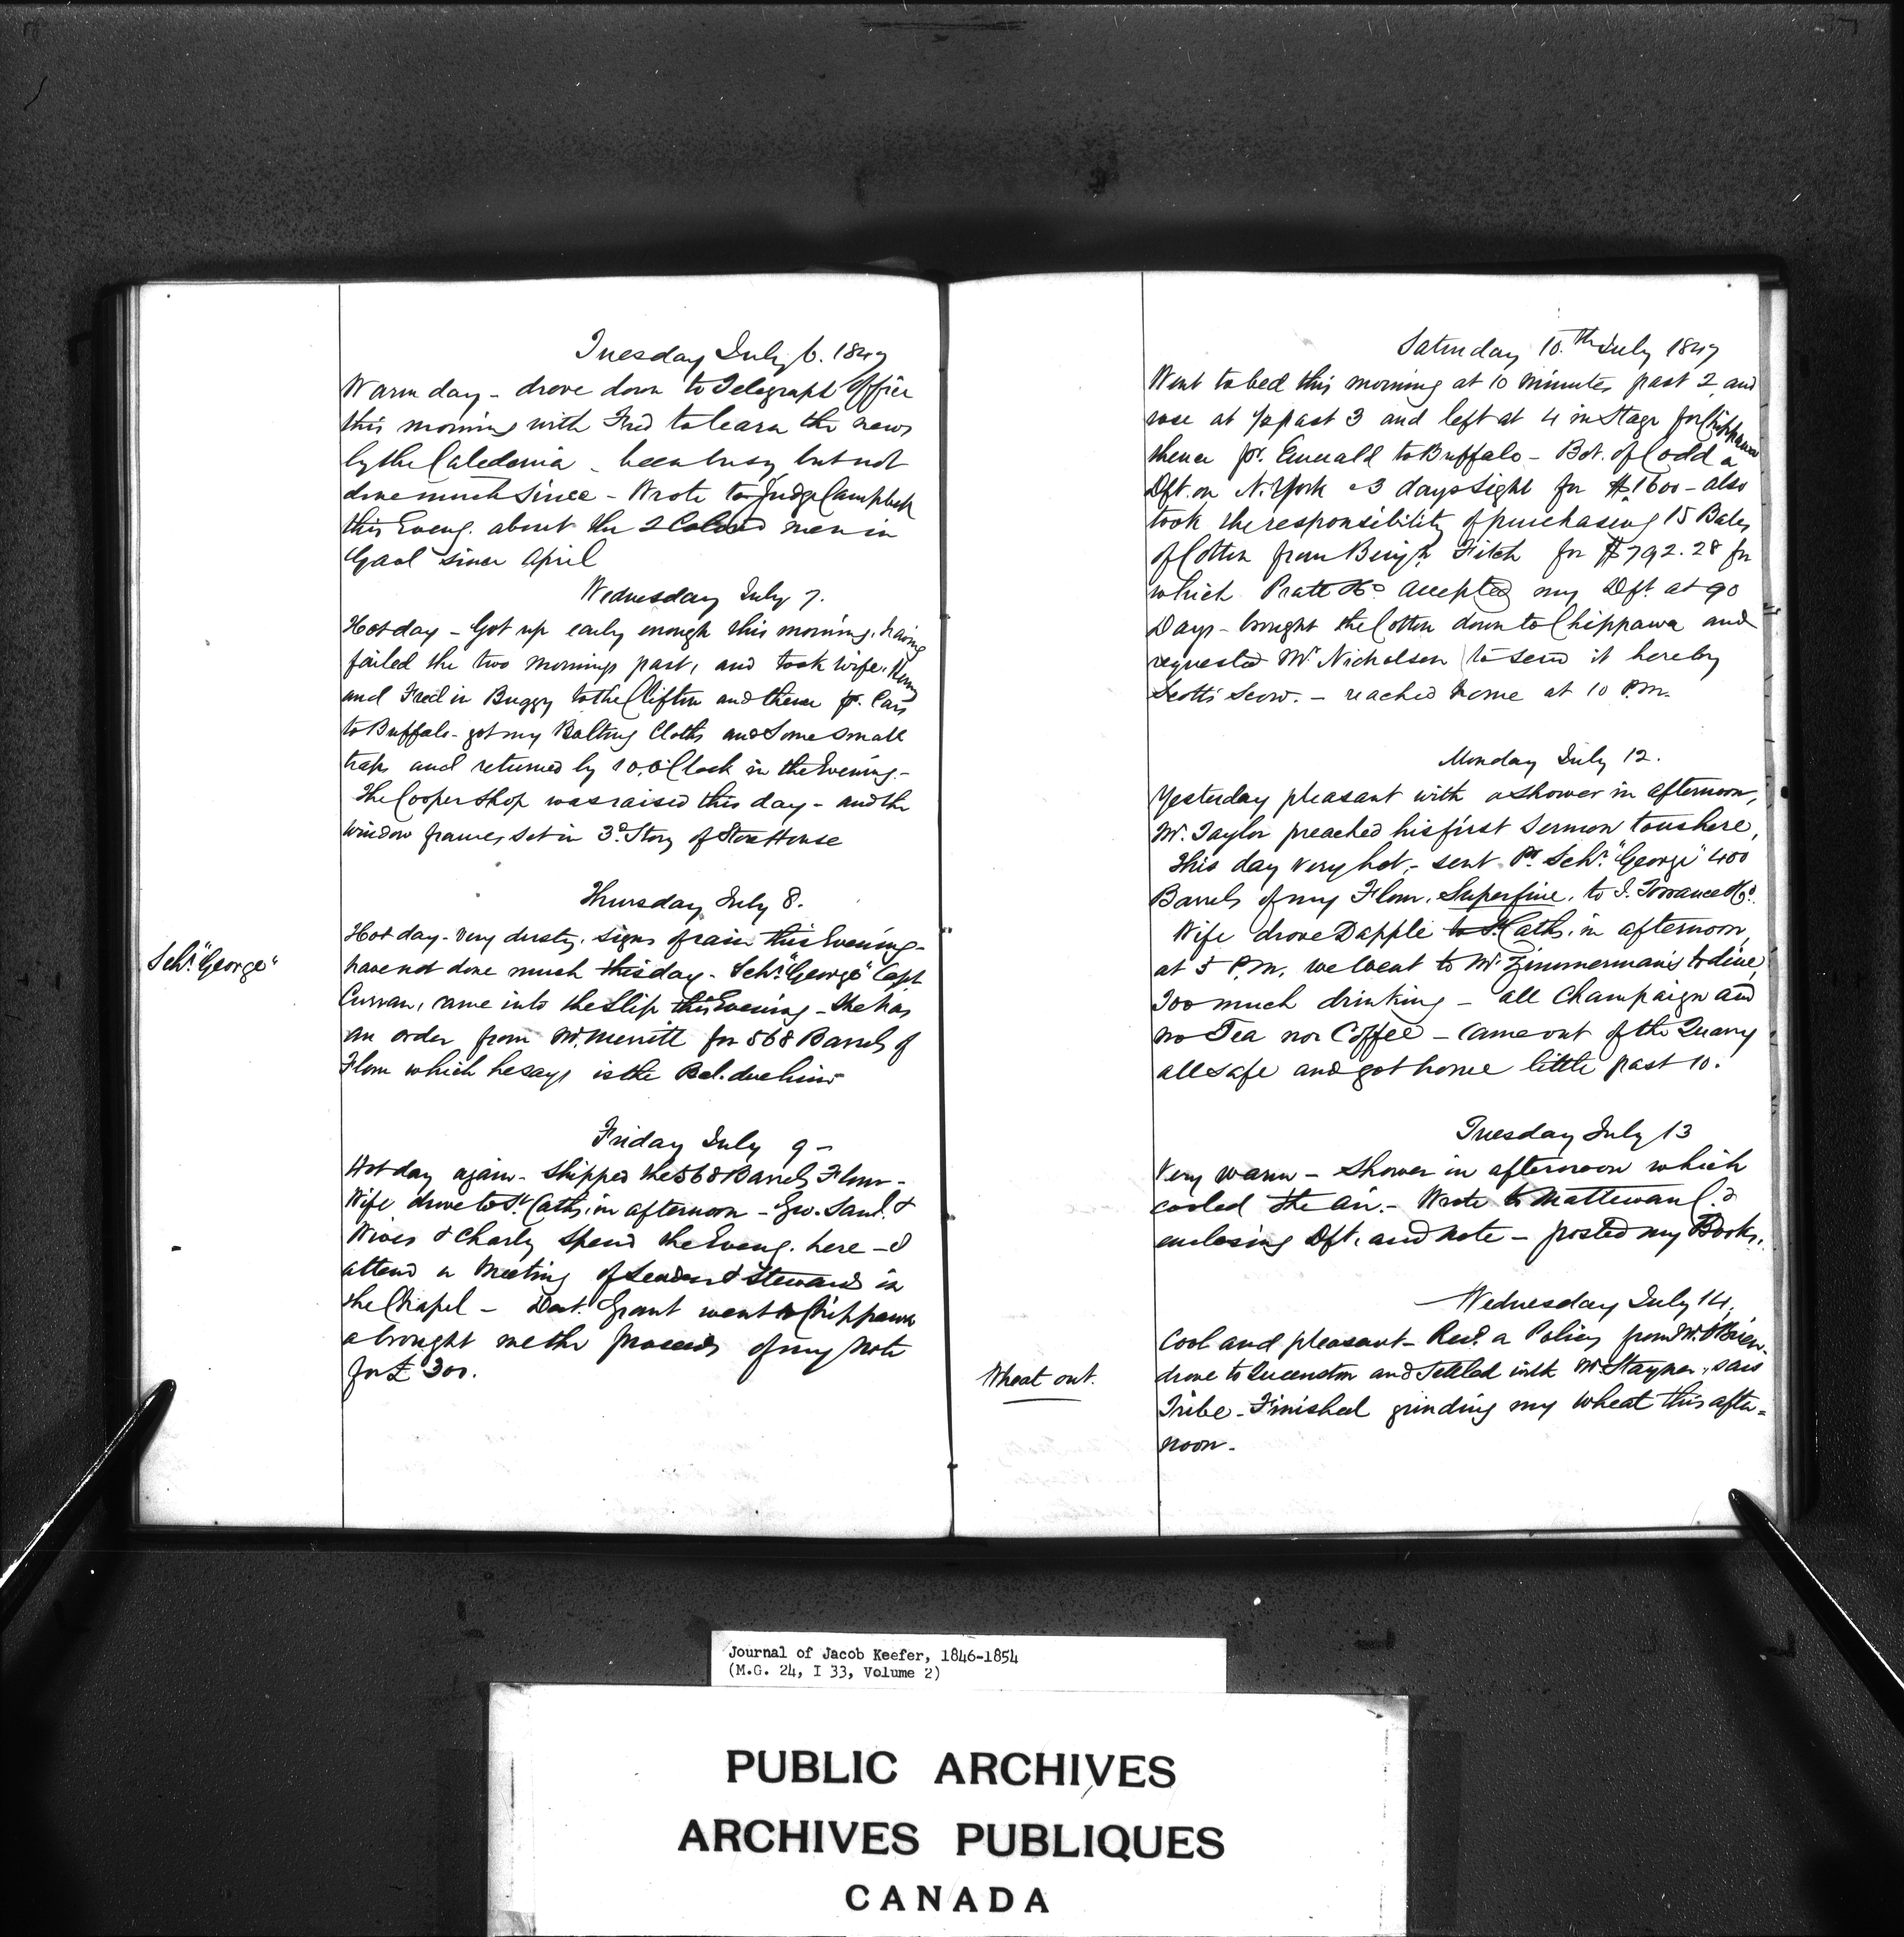 Tuesday July 6. 1847
Warm day - drove down to Telegraph Office
this morning with Fred to learn the news
by the Caledonia - been busy but not
done much since - Wrote to Judge Campbell
this Eveng. about the 2 Colored men in
Gaol since April
Wednesday July 7.
Hot day - Got up early enough this morning, having
failed the two mornings past, and took wife, Henry
and Fred in Buggy to the Clifton and thence pr. Cars
to Buffalo - got my Bolting Cloths and some small
traps and returned by 10, O'Clock in the Evening -
The Cooper Shop was raised this day - and the
window frames set in 3d. Story of Store House
Thursday July 8.
Hot day - very dusty, signs of rain this Evening -
Schr. "George"
have not done much this day - Schr. "George" Capt
Curran, came into the Slip this Evening - She has
an order from Mr. Merritt for 568 Barrels of
Flour which he says is the Bal. due him
Friday July 9 -
Hot day again - Shipped the 568 Barrels Flour -
Wife drove to St. Caths. in afternoon - Geo. Saml. &
Wives & Charly spend the Eveng. here - I
attend a Meeting of Leaders & Stewards in
the Chapel - Grant went to Chippawa
& brought me the proceeds of my Note
for £ 300.
Saturday 10.th July 1847
Went to bed this morning at 10 minutes past 2, and
rose at 1/2 past 3 and left at 4 in Stage for Chippawa
thence pr. Emerald to Buffalo - Bot. of Codd a
Dft. on N. York @ 3 days sight for $1600 - also
took the responsibility of purchasing 15 Bales
of Cotton from Benjn. Fitch for $792.28 for
which Pratt & Co accepted my Dft. at 90
Days - brought the Cotton down to Chippawa and
requested Mr. Nicholson to send it here by
Scotts Scow. - reached home at 10 P.M.
Monday July 12.
Yesterday pleasant with a shower in afternoon,
Mr. Taylor preached his first Sermon to us here,
This day very hot, - sent Pr. Schr. "George" 400
Barrels of my Flour, Superfine, to J. Torrance & Co.
Wife drove Dapple to St. Caths. in afternoon,
at 5 P.M. we went to Mr. Zimmerman's to dine,
Too much drinking - all Champaign and
no Tea nor Coffee - came out of the Quarry
all safe and got home little past 10.
Tuesday July 13
Very warm - Shower in afternoon which
cooled the air. - Wrote to Mattewan Co.
enclosing Dft. and note - posted my Books.
Wednesday July 14.
Cool and pleasant - Recd. a Policy from Mr. O'Brien -
Wheat out.
drove to Queenston and settled with Mr. Stayner, saw
Tribe - Finished grinding my wheat this after=
noon -
Journal of Jacob Keefer, 1846-1854
(M.G. 24, I 33, Volume 2)
PUBLIC ARCHIVES
ARCHIVES PUBLIQUES
CANADA